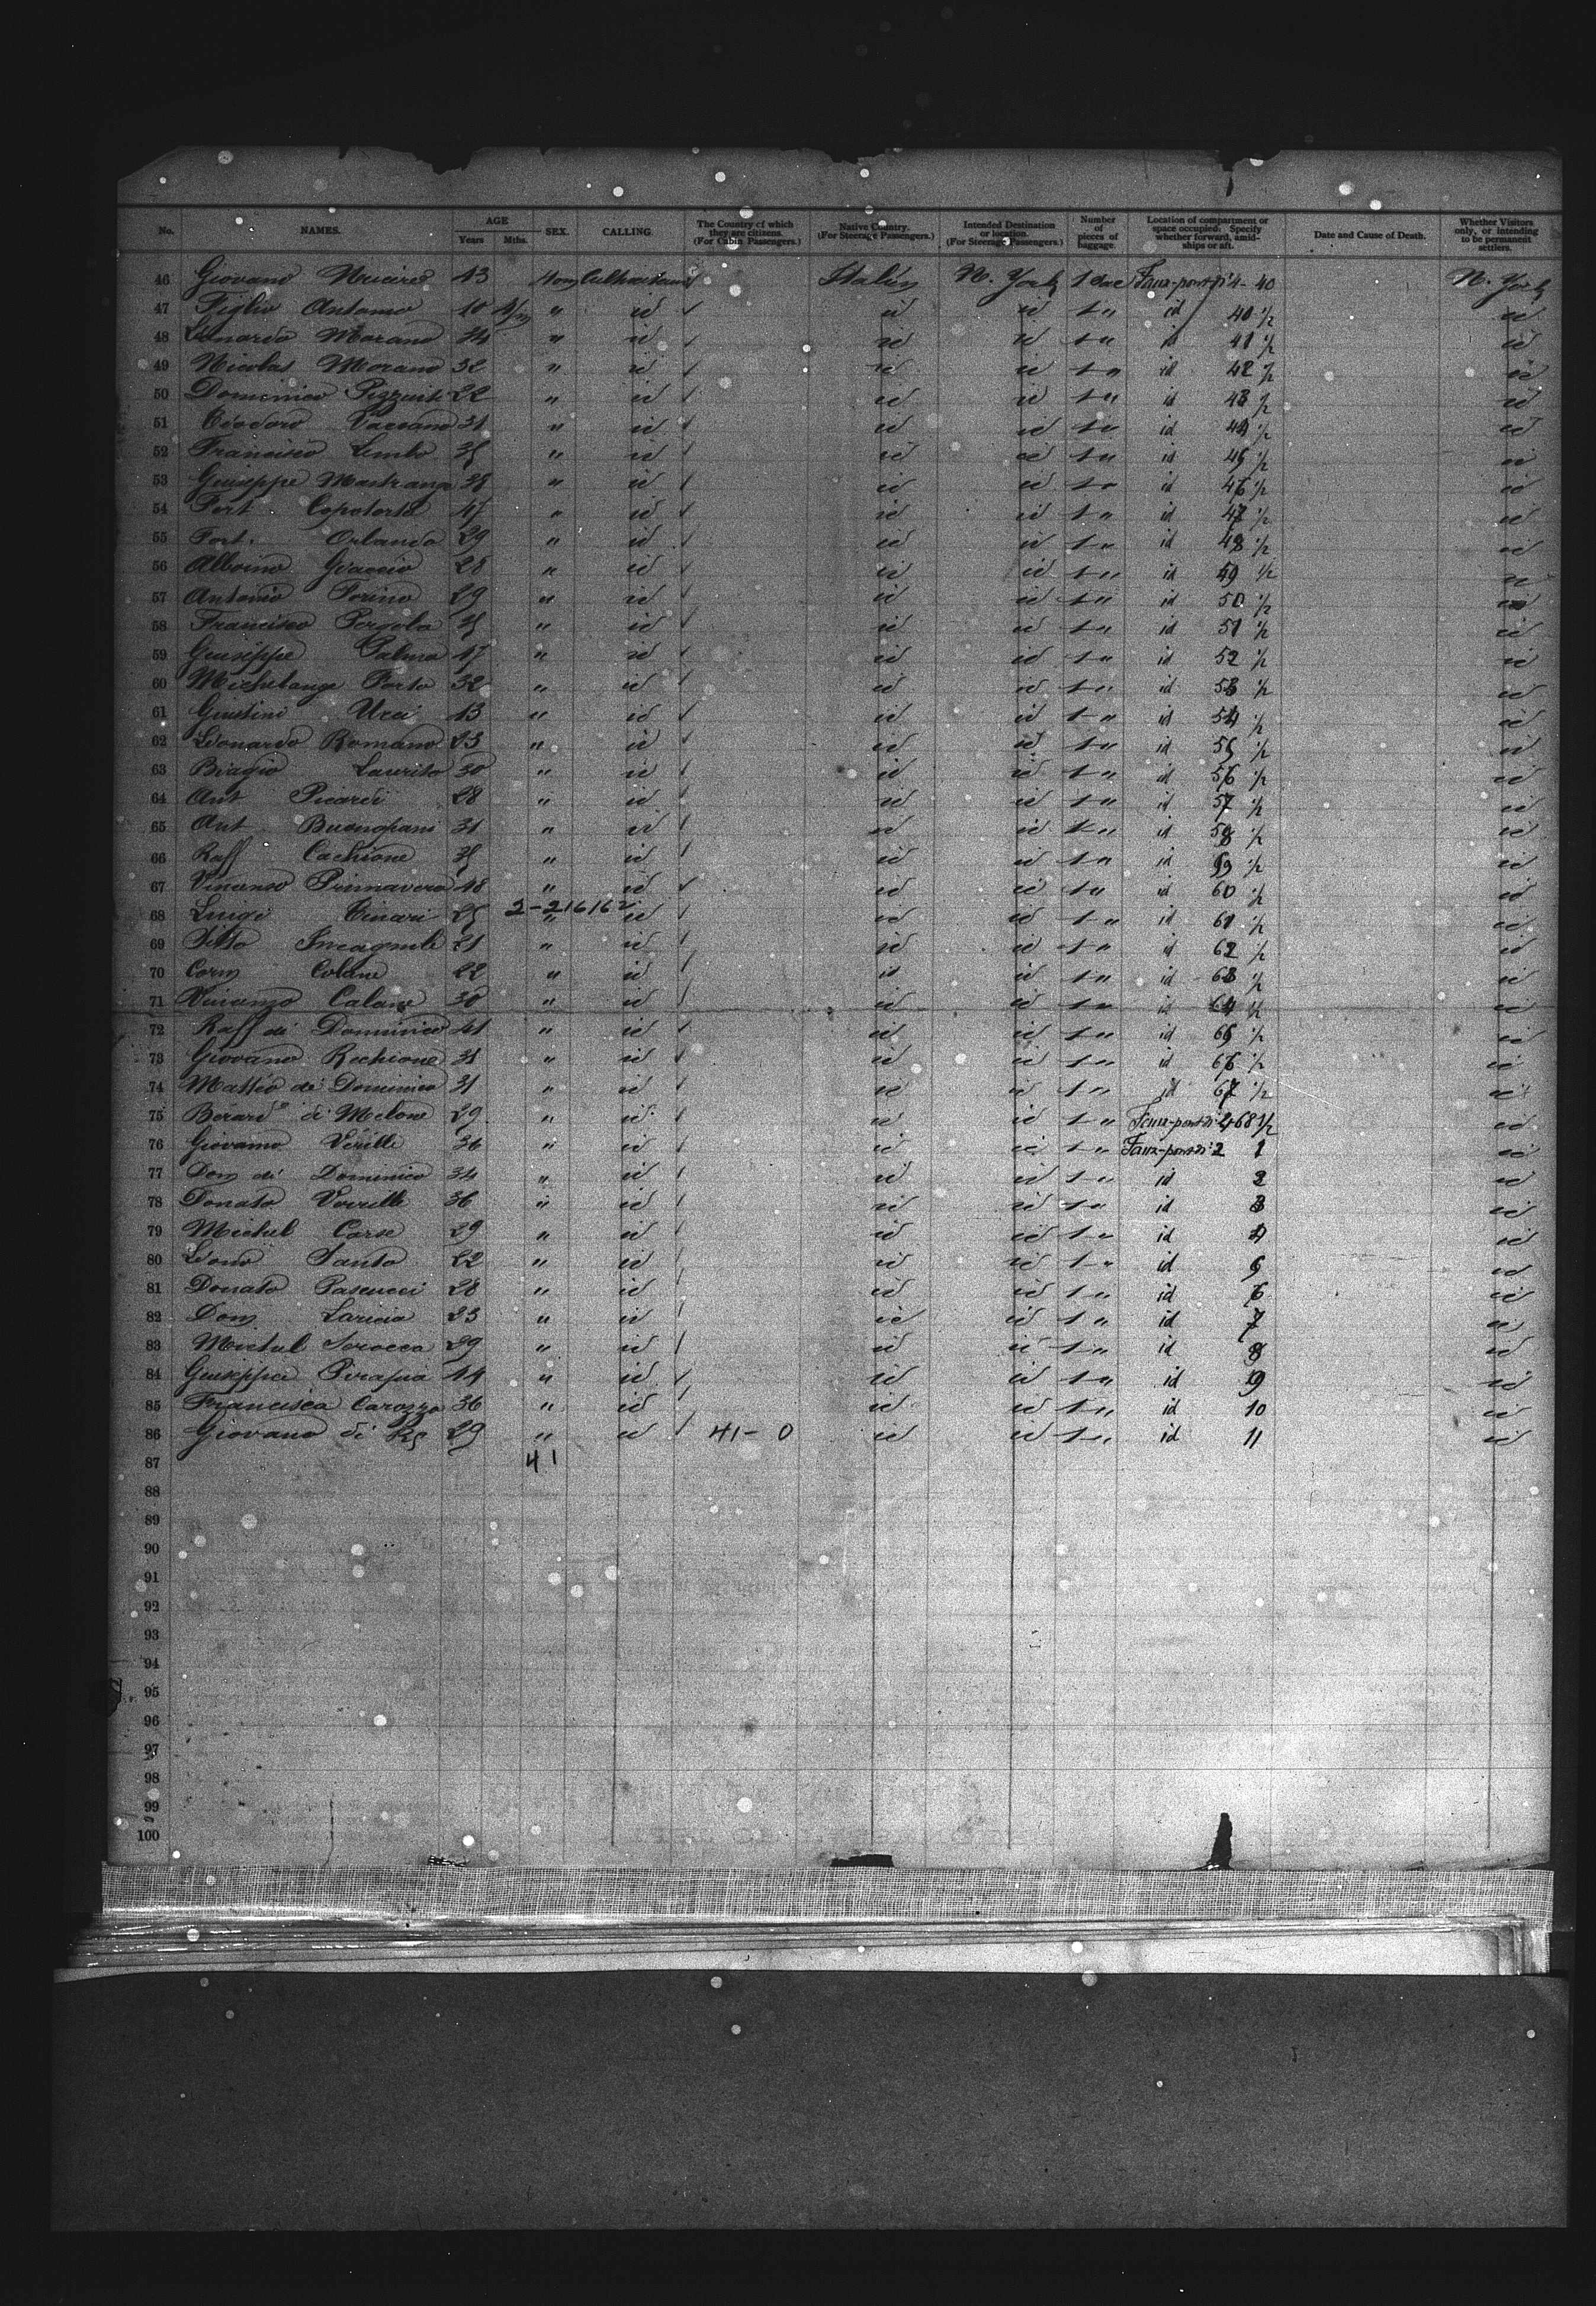 No. NAMES. AGE Years Mths. SEX. CALLING. The Country of which they are citizens. (For Cabin Passengers.) Native Country. (For Steerage Passengers.) Intended Destination or location. (For Steerage Passengers.) Number of pieces of baggage. Location of compartment or space occupied. Specify whether forward, amidships or aft. Date and Cause of Death. Whether Visitors only, or intending to be permanent settlers.
46 Giovano 43 Italien N. York 1 sac Faux-pont n° 4- 40 N. York
47 Figlio Antamo 10 " id id id 1 " id 40 ½ id
48 Leonardo Morano 34 " id id id 1 " id 41 ½ id
49 Nicolas Morano 32 " id id id 1 " id 42 ½ id
50 Dominico 22 " id id id 1 " id 43 ½ id
51 Teodoro Vaccano 31 " id id id 1 " id 44 ½ id
52 Francisco Lembo 35 " id id id 1 " id 45 ½ id
53 Guiseppe Mastrange " id id id 1 " id 46 ½ id
54 Fort Capotorto 47 " id id id 1 " id 47 ½ id
55 Fort. Orlando 29 " id id id 1 " id 48 ½ id
56 Alboino Graccio 28 " id id id 1 " id 49 ½ id
57 Antonio Torino 29 " id id id 1 " id 50 ½ id
58 Francisco Pergola 35 " id id id 1 " id 51 ½ id
59 Guiseppe Palma 47 " id id id 1 " id 52 ½ id
60 Michelange Porto 32 " id id id 1 " id 53 ½ id
61 Giustini Urci 43 " id id id 1 " id 54 ½ id
62 Leonardo Romano 23 " id id id 1 " id 55 ½ id
63 Biagio Laurito 30 " id id id 1 " id 56 ½ id
64 Ant Picardi 28 " id id id 1 " id 57 ½ id
65 Ant Buonopani 31 " id id id 1 " id 58 ½ id
66 Raff Cachione 35 " id id id 1 " id 59 ½ id
67 Vincenso Primavera 48 " id id id 1 " id 60 ½ id
68 Luigi Cinari 25 2-216162 " id id id 1 " id 61 ½ id
69 21 " id id id 1 " id 62 ½ id
70 Carm Colane 22 " id id id 1 " id 63 ½ id
71 Calane 30 " id id id 1 " id 64 ½ id
72 Raff di Dominico 41 " id id id 1 " id 65 ½ id
73 Giovano Rechione 31 " id id id 1 " id 66 ½ id
74 Mattio di Dominico 31 " id id id 1 " id 67 ½ id
75 Berard° di Melone 29 " id id id 1 " Faux-pont n° 4 68 ½ id
76 Giovanno Verille 36 " id id id 1 " Faux-pont n° 2 1 id
77 Dom di Dominico 34 " id id id 1 " id 2 id
78 Donato Verrille 36 " id id id 1 " id 3 id
79 Michel Corse 29 " id id id 1 " id 4 id
80 Santo 22 " id id id 1 " id 5 id
81 Donato Pascucci 28 " id id id 1 " id 6 id
82 Dom Laricia 23 " id id id 1 " id 7 id
83 Michel Sorocca 29 " id id id 1 " id 8 id
84 Guiseppe 44 " id id id 1 " id 9 id
85 Francisca Carozzo 36 " id id id 1 " id 10 id
86 Giovano di 29 " id 41- 0 id id 1 " id 11 id
87 41
88
89
90
91
92
93
94
95
96
97
98
99
100